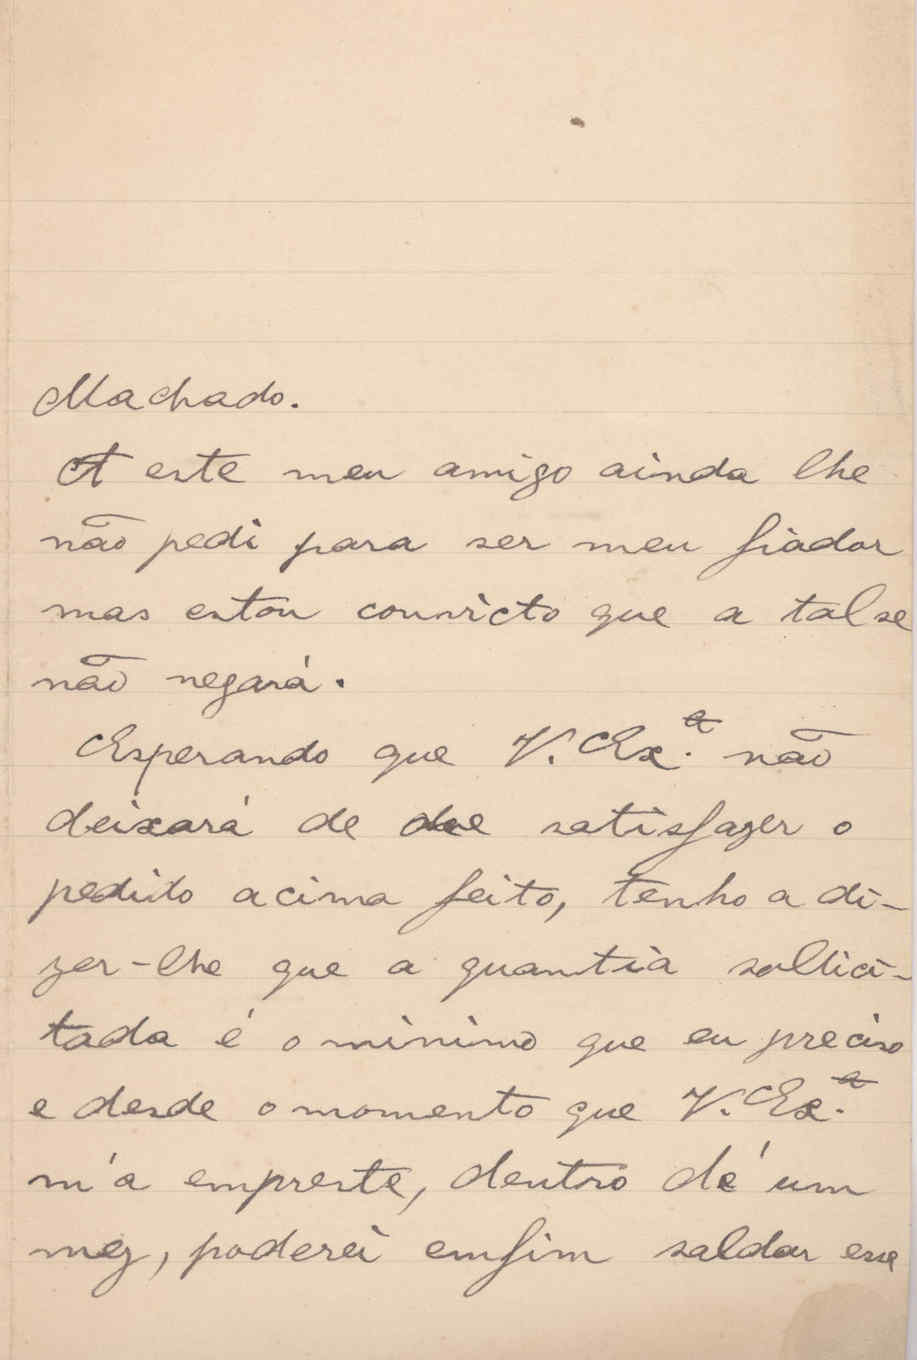 Machado.
A este meu amigo ainda lhe
não pedi para ser meu fiador
mas estou convicto que a tal se
não negará.
Esperando que V. Ex.ª não
deixará de satisfazer o
pedido acima feito, tenho a di-
zer-lhe que a quantia sollici-
tada é o minimo que eu preciso
e desde o momento que V. Ex.ª
m'a empreste, dentro de um
mez, poderei emfim saldar esse